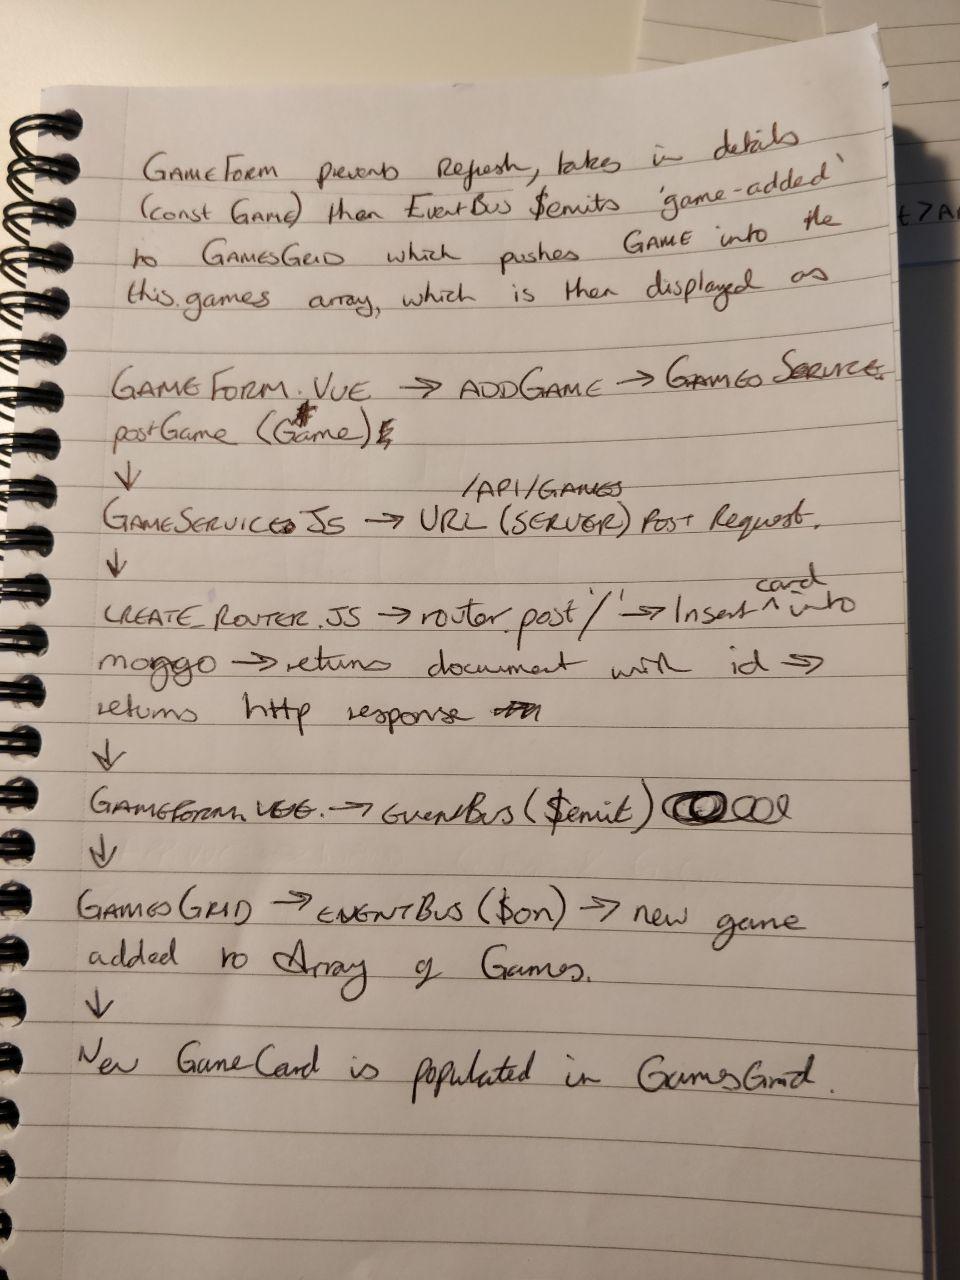 GAMEFORM prevents Refresh, takes in details
(const GAME) then EVENTBUS $emits 'game-added'
to GAMESGRID which pushes GAME into the
this.games array, which is then displayed as
GAMEFORM.VUE → ADDGAME → GAMESSERVICE.
postGame (Game)
↓
/API/GAMES
GAMESERVICES.JS → URL (SERVER) POST Request.
↓
CREATE_ROUTER.JS → router.post '/' → Insert ^ card into
monggo → returns document with id →
returns http response
↓
GAMEFORM.VUE. → EVENTBUS ($emit)
↓
GAMESGRID → EVENTBUS ($on) → new game
added to Array of Games.
↓
New GameCard is populated in GamesGrid.